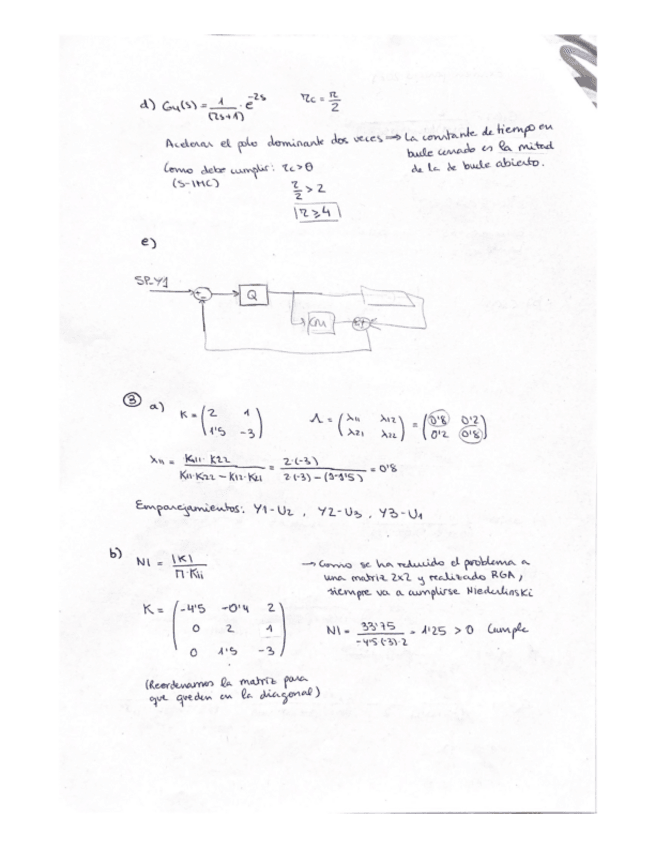 d) G₄(s) = 1/(τs+1) · e^-2s    τc = τ/2
Acelerar el polo dominante dos veces ⟹ La constante de tiempo en
bucle cerrado es la mitad
de la de bucle abierto.
Como debe cumplir: τc > θ
(S-IMC)
τ/2 > 2
τ ≥ 4
e)
SP-Y1
+
-
Q
③ a) K = (2 1; 1'5 -3)    Λ = (λ11 λ12; λ21 λ22) = (0'8 0'2; 0'2 0'8)
λ11 = K11·K22 / (K11·K22 - K12·K21) = 2·(-3) / (2·(-3) - (1·1'5)) = 0'8
Emparejamientos: Y1-U2, Y2-U3, Y3-U1
b) NI = |K| / Π·Kii
→ Como se ha reducido el problema a
una matriz 2x2 y realizado RGA,
siempre va a cumplirse Niederlinski
K = (-4'5 -0'4 2; 0 2 1; 0 1'5 -3)
NI = 33'75 / -4'5·(-3)·2 = 1'25 > 0 Cumple
(Reordenamos la matriz para
que queden en la diagonal)